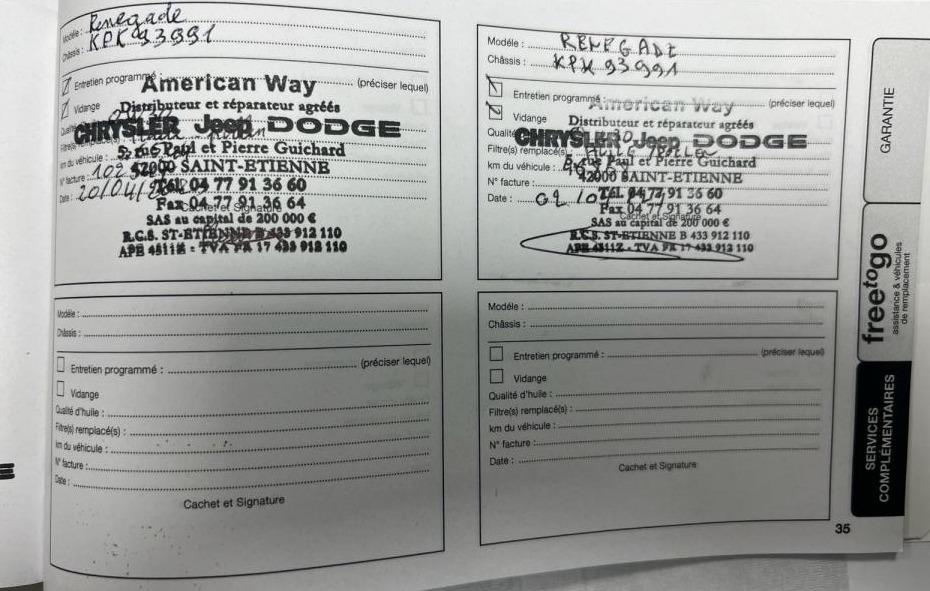 Modèle : Renegade
Châssis : KPK 93991
Entretien programmé : (préciser lequel)
American Way
Vidange
Distributeur et réparateur agréés
CHRYSLER Jeep DODGE
5, rue Paul et Pierre Guichard
km du véhicule :
42000 SAINT-ETIENNE
N° facture : 102
Tél. 04 77 91 36 60
Date : 20/04/
Fax 04 77 91 36 64
Cachet et Signature
SAS au capital de 200 000 €
R.C.S. ST-ETIENNE B 433 912 110
APE 4511Z - TVA FR 17 433 912 110
Modèle : RENEGADE
Châssis : KPK 93991
Entretien programmé : (préciser lequel)
American Way
Vidange
Distributeur et réparateur agréés
Qualité
CHRYSLER Jeep DODGE
Filtre(s) remplacé(s) : HUILE
5, rue Paul et Pierre Guichard
km du véhicule :
42000 SAINT-ETIENNE
N° facture :
Tél. 04 77 91 36 60
Date : 02/10
Fax 04 77 91 36 64
Cachet et Signature
SAS au capital de 200 000 €
R.C.S. ST-ETIENNE B 433 912 110
APE 4511Z - TVA FR 17 433 912 110
Modèle :
Châssis :
Entretien programmé : (préciser lequel)
Vidange
Qualité d'huile :
Filtre(s) remplacé(s) :
km du véhicule :
N° facture :
Date :
Cachet et Signature
Modèle :
Châssis :
Entretien programmé : (préciser lequel)
Vidange
Qualité d'huile :
Filtre(s) remplacé(s) :
km du véhicule :
N° facture :
Date :
Cachet et Signature
35
GARANTIE
freetogo
assistance & véhicules
de remplacement
SERVICES
COMPLÉMENTAIRES